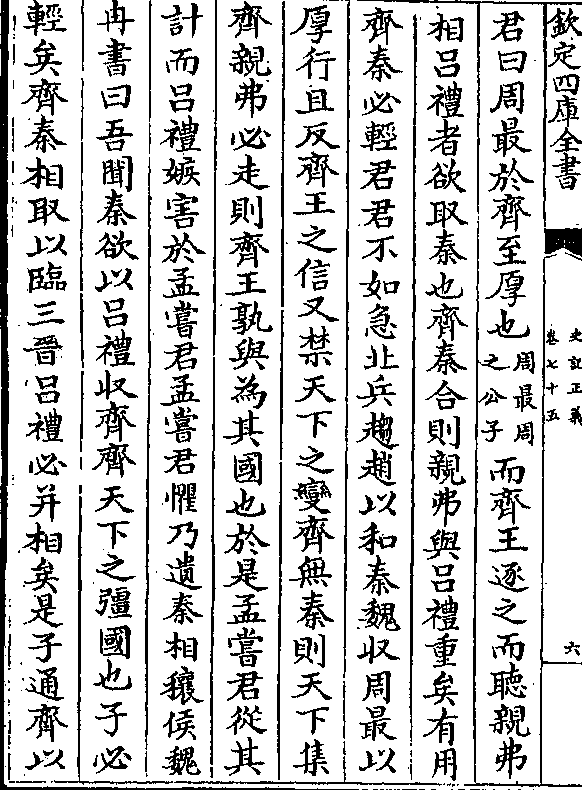 欽定四庫全書
史記正義
卷七十五
六
君曰周最於齊至厚也周最周之公子而齊王逐之而聽親弗
相呂禮者欲取秦也齊秦合則親弗與呂禮重矣有用
齊秦必輕君君不如急北兵趨趙以和秦魏收周最以
厚行且反齊王之信又禁天下之變齊無秦則天下集
齊親弗必走則齊王孰與為其國也於是孟嘗君從其
計而呂禮嫉害於孟嘗君孟嘗君懼乃遺秦相穰侯魏
冉書曰吾聞秦欲以呂禮收齊齊天下之彊國也子必
輕矣齊秦相取以臨三晉呂禮必并相矣是子通齊以